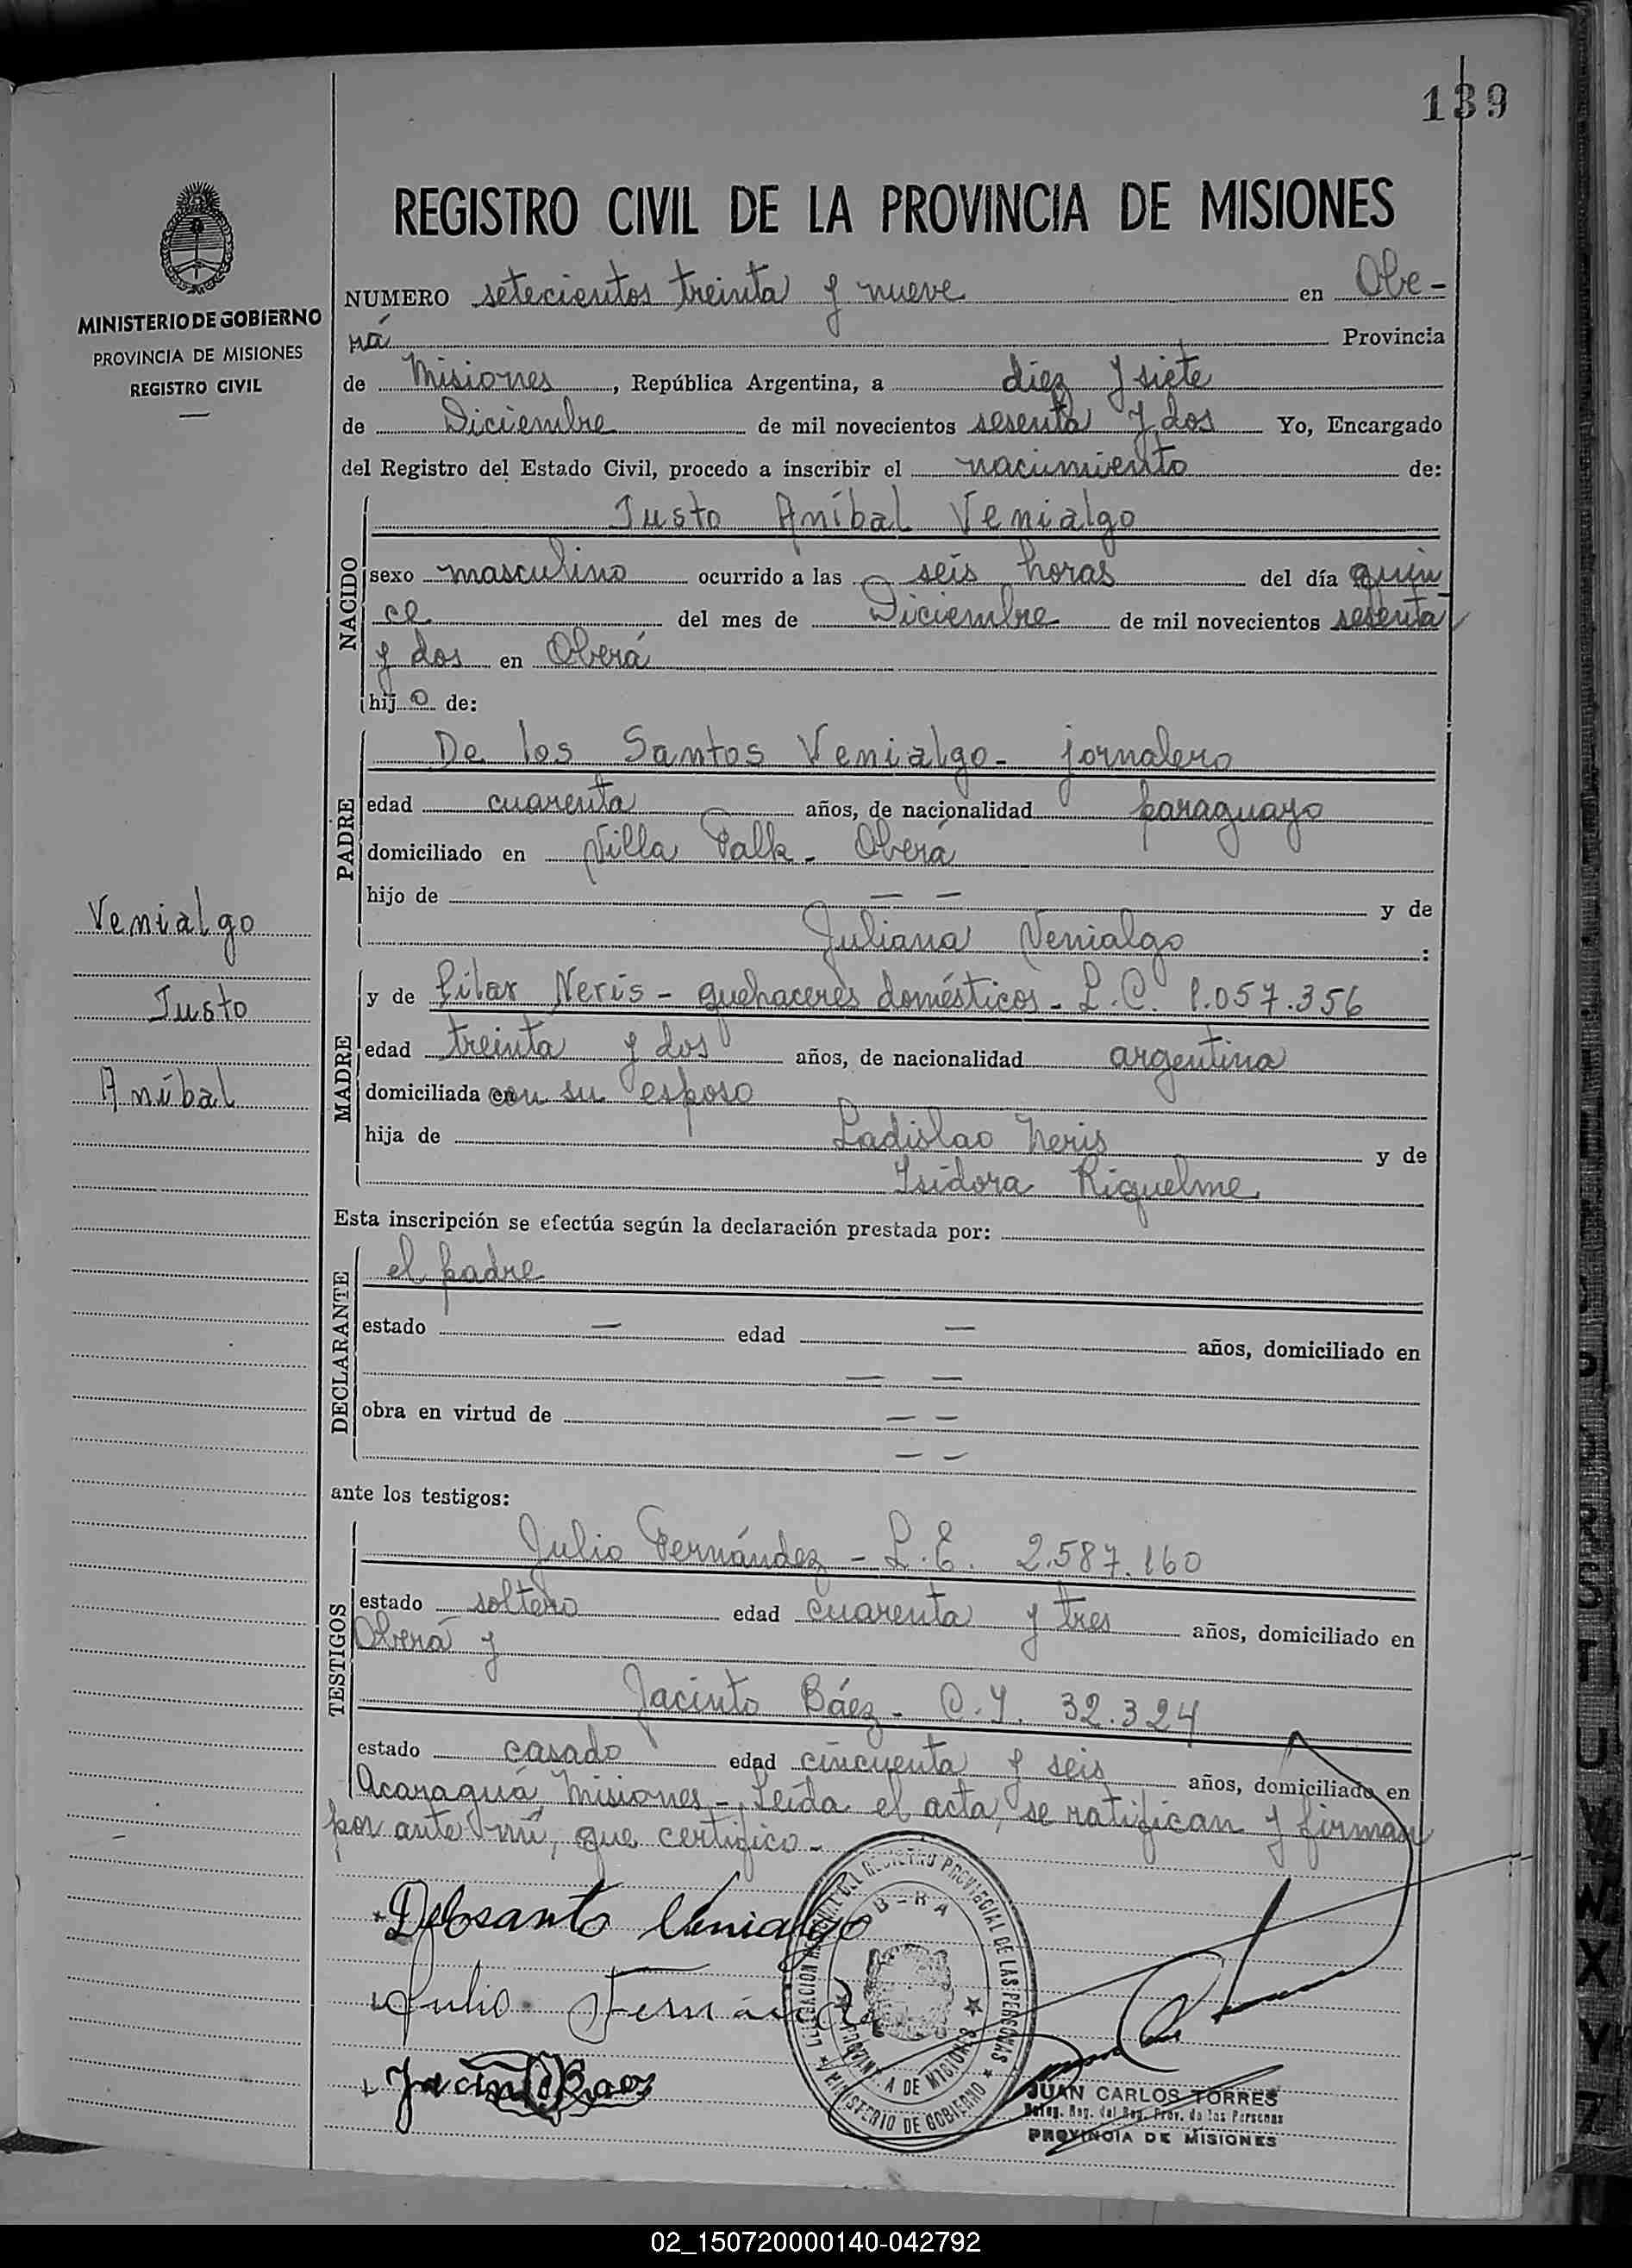 139
REGISTRO CIVIL DE LA PROVINCIA DE MISIONES
MINISTERIO DE GOBIERNO
PROVINCIA DE MISIONES
REGISTRO CIVIL
NUMERO setecientos treinta y nueve en Obe-
rá Provincia
de Misiones, República Argentina, a diez y siete
de Diciembre de mil novecientos sesenta y dos Yo, Encargado
del Registro del Estado Civil, procedo a inscribir el nacimiento de:
NACIDO
Justo Aníbal Venialgo
sexo masculino ocurrido a las seis horas del día quin
ce del mes de Diciembre de mil novecientos sesenta
y dos en Oberá
hijo de:
PADRE
De los Santos Venialgo - jornalero
edad cuarenta años, de nacionalidad paraguayo
domiciliado en Villa Falk - Oberá
hijo de — — y de
Juliana Venialgo :
Venialgo
Justo
Aníbal
MADRE
y de Pilar Neris - quehaceres domésticos - L.C. 1.057.356
edad treinta y dos años, de nacionalidad argentina
domiciliada con su esposo
hija de Ladislao Neris y de
Isidora Riquelme
Esta inscripción se efectúa según la declaración prestada por:
DECLARANTE
el padre
estado — edad — años, domiciliado en
— —
obra en virtud de — —
— —
ante los testigos:
TESTIGOS
Julio Fernández - L.E. 2.587.160
estado soltero edad cuarenta y tres años, domiciliado en
Oberá y
Jacinto Báez - C.I. 32.324
estado casado edad cincuenta y seis años, domiciliado en
Acaraguá Misiones - Leída el acta, se ratifican y firman
por ante mí, que certifico -
Delosanto Venialgo
Julio Fernández
Jacinto Baez
REGISTRO PROVINCIAL DE LAS PERSONAS
MINISTERIO DE GOBIERNO
DE MISIONES
JUAN CARLOS TORRES
Deleg. Reg. del Reg. Prov. de las Personas
PROVINCIA DE MISIONES
U
V
W
X
Y
Z
02_150720000140-042792